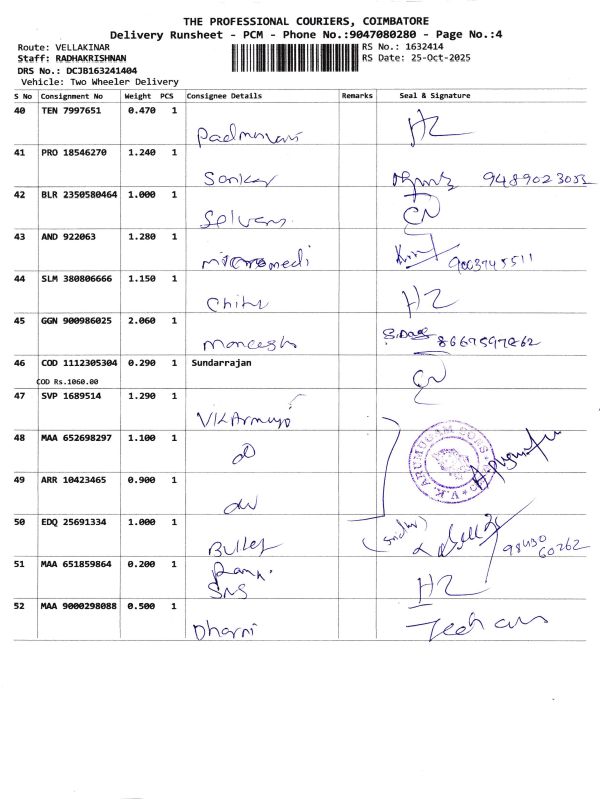 THE PROFESSIONAL COURIERS, COIMBATORE
Delivery Runsheet - PCM - Phone No.:9047080280 - Page No.:4
Route: VELLAKINAR
RS No.: 1632414
Staff: RADHAKRISHNAN
RS Date: 25-Oct-2025
DRS No.: DCJB163241404
Vehicle: Two Wheeler Delivery
S No Consignment No Weight PCS Consignee Details Remarks Seal & Signature
40 TEN 7997651 0.470 1
HZ
41 PRO 18546270 1.240 1
9489023055
42 BLR 2350580464 1.000 1
Selvam
43 AND 922063 1.280 1
micromedi
9003745511
44 SLM 380806666 1.150 1
HZ
45 GGN 900986025 2.060 1
8667597862
46 COD 1112305304 0.290 1 Sundarrajan
COD Rs.1060.00
47 SVP 1689514 1.290 1
48 MAA 652698297 1.100 1
V.K. ARUMUGAM CORS
49 ARR 10423465 0.900 1
50 EDQ 25691334 1.000 1
Bullet
98430
60262
51 MAA 651859864 0.200 1
SNS
HZ
52 MAA 9000298088 0.500 1
Dharni